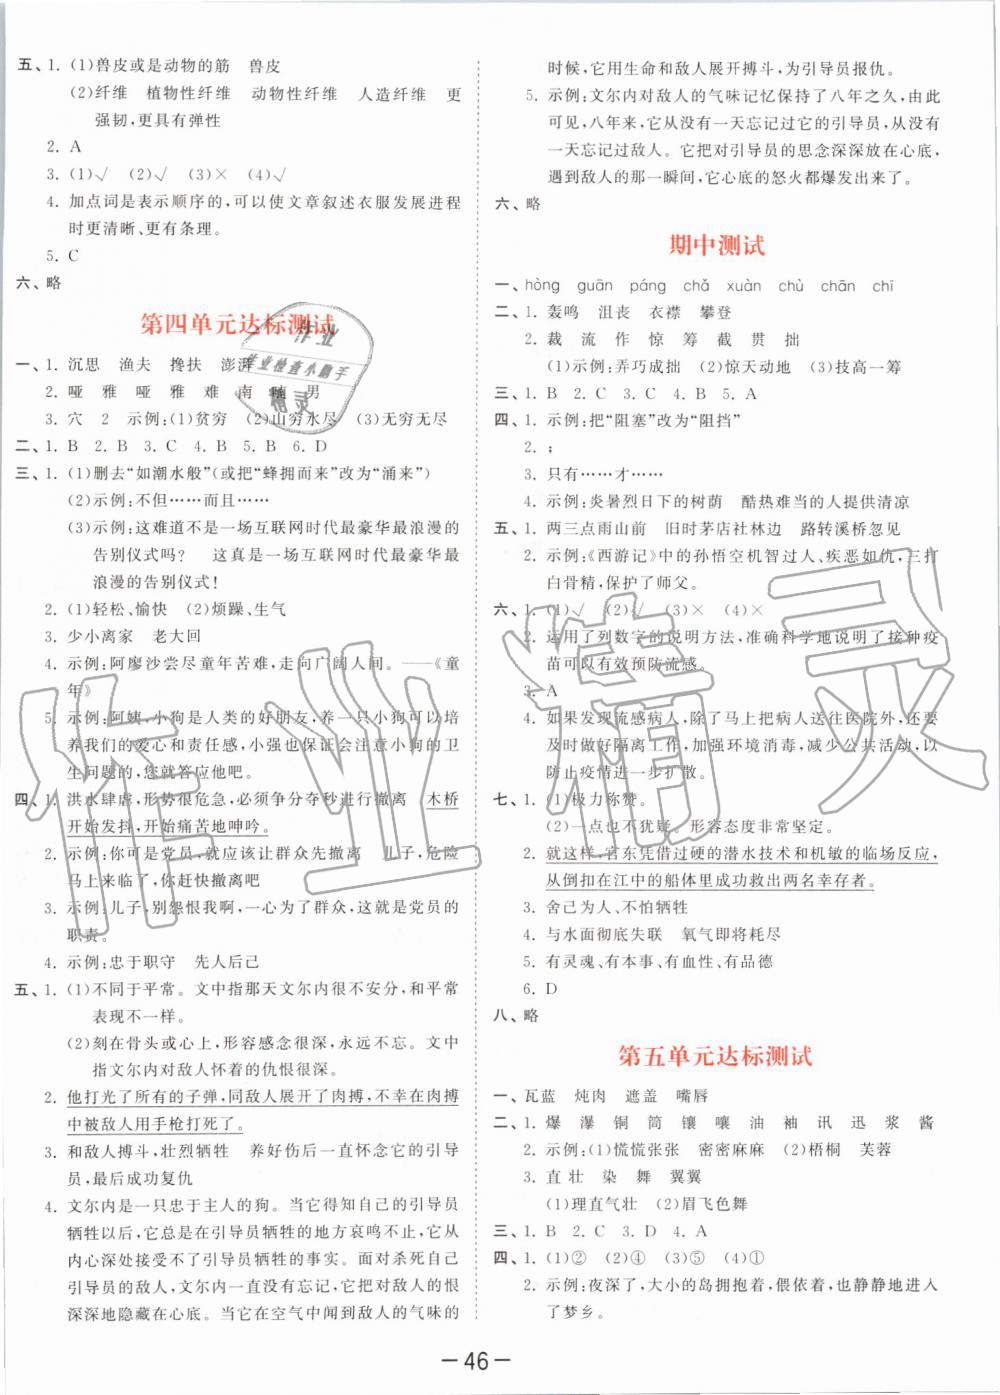 五、1. (1)兽皮或是动物的筋　兽皮
(2)纤维　植物性纤维　动物性纤维　人造纤维　更
强韧,更具有弹性
2. A
3. (1)√　(2)√　(3)×　(4)√
4. 加点词是表示顺序的,可以使文章叙述衣服发展进程
时更清晰、更有条理。
5. C
六、略
第四单元达标测试
一、1. 沉思　渔夫　搀扶　澎湃
2. 哑　雅　哑　雅　难　南　喃　男
3. 穴　2　示例:(1)贫穷　(2)山穷水尽　(3)无穷无尽
二、1. B　2. B　3. C　4. B　5. B　6. D
三、1. (1)删去“如潮水般”(或把“蜂拥而来”改为“涌来”)
(2)示例:不但……而且……
(3)示例:这难道不是一场互联网时代最豪华最浪漫的
告别仪式吗?　这真是一场互联网时代最豪华最
浪漫的告别仪式!
2. (1)轻松、愉快　(2)烦躁、生气
3. 少小离家　老大回
4. 示例:阿廖沙尝尽童年苦难,走向广阔人间。——《童
年》
5. 示例:阿姨,小狗是人类的好朋友,养一只小狗可以培
养我们的爱心和责任感,小强也保证会注意小狗的卫
生问题的,您就答应他吧。
四、1. 洪水肆虐,形势很危急,必须争分夺秒进行撤离　木桥
开始发抖,开始痛苦地呻吟。
2. 示例:你可是党员,你应该让群众先撤离　儿子,危险
马上来临了,你赶快撤离吧
3. 示例:儿子,别怨恨我啊,一心为了群众,这就是党员的
职责。
4. 示例:忠于职守　先人后己
五、1. (1)不同于平常。文中指那天文尔内很不安分,和平常
表现不一样。
(2)刻在骨头或心上,形容感念很深,永远不忘。文中
指文尔内对敌人怀着的仇恨很深。
2. 他打光了所有的子弹,同敌人展开了肉搏,不幸在肉搏
中被敌人用手枪打死了。
3. 和敌人搏斗,壮烈牺牲　养好伤后一直怀念它的引导
员,最后成功复仇
4. 文尔内是一只忠于主人的狗。当它得知它的引导员
牺牲以后,它总是在引导员牺牲的地方哀鸣不止,它从
内心深处接受不了引导员牺牲的事实。面对杀死自己
引导员的敌人,文尔内一直没有忘记,把对敌人的恨
深深地隐藏在心底。当它在空气中闻到敌人的气味的
时候,它用生命和敌人展开搏斗,为引导员报仇。
5. 示例:文尔内对敌人的气味记忆保持了八年之久,由此
可见,八年来,它没有一天忘记过它的引导员,从没有
一天忘记过敌人。它把对引导员的思念深深放在心底,
遇到敌人的那一瞬间,它心底的怒火都爆发出来了。
六、略
期中测试
一、hòng　guān　páng　chǎ　xuàn　chù　chān　chī
二、1. 轰鸣　沮丧　衣襟　攀登
2. 裁　流　作　惊　筹　截　贯　拙
(1)示例:弄巧成拙　(2)惊天动地　(3)技高一筹
三、1. B　2. C　3. C　4. B　5. A
四、1. 示例:把“阻塞”改为“阻挡”
2. ;
3. 只有……才……
4. 示例:炎暑烈日下的树荫　酷热难当的人提供清凉
五、1. 两三点雨山前　旧时茅店社林边　路转溪桥忽见
2. 示例:《西游记》中的孙悟空机智过人、疾恶如仇,三打
白骨精,保护了师父。
六、1. (1)√　(2)√　(3)×　(4)×
2. 运用了列数字的说明方法,准确科学地说明了接种疫
苗可以有效预防流感。
3. A
4. 如果发现流感病人,除了马上把病人送往医院外,还要
及时做好隔离工作,加强环境消毒,减少公共活动,以
防止疫情进一步扩散。
七、1. (1)极力称赞。
(2)一点也不犹疑。形容态度非常坚定。
2. 就这样,官东凭借过硬的潜水技术和机敏的临场反应,
从倒扣在江中的船体里成功救出两名幸存者。
3. 舍己为人、不怕牺牲
4. 与水面彻底失联　氧气即将耗尽
5. 有灵魂、有本事、有血性、有品德
6. D
八、略
第五单元达标测试
一、瓦蓝　炖肉　遮盖　嘴唇
二、1. 爆　瀑　铜　筒　镶　嚷　油　袖　讯　迅　浆　酱
2. 示例:(1)慌慌张张　密密麻麻　(2)梧桐　芙蓉
3. 直　壮　染　舞　翼翼
(1)理直气壮　(2)眉飞色舞
三、1. B　2. C　3. D　4. A
四、1. (1)②　(2)④　(3)⑤　(4)①
2. 示例:夜深了,大小的岛拥抱着,偎依着,也静静地进入
了梦乡。
— 46 —
作业
作业检查小助手
精灵
作业精灵